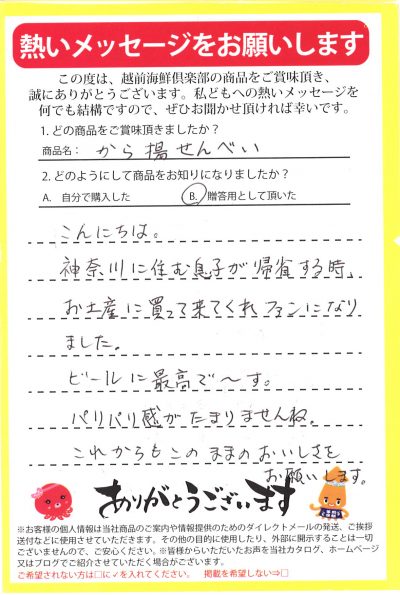 熱いメッセージをお願いします
この度は、越前海鮮倶楽部の商品をご賞味頂き、
誠にありがとうございます。私どもへの熱いメッセージを
何でも結構ですので、ぜひお聞かせ頂ければ幸いです。
1. どの商品をご賞味頂きましたか？
商品名： から揚せんべい
2. どのようにして商品をお知りになりましたか？
A. 自分で購入した B. 贈答用として頂いた
こんにちは。
神奈川に住む息子が帰省する時、
お土産に買って来てくれファンになり
ました。
ビールに最高で〜す。
パリパリ感がたまりませんね。
これからもこのままのおいしさを
お願いします。
ありがとうございます
※お客様の個人情報は当社商品のご案内や情報提供のためのダイレクトメールの発送、ご挨拶
送付などに使用させていただきます。その他の目的に使用したり、外部に開示することは一切
ございませんので、ご安心ください。※皆様からいただいたお声を当社カタログ、ホームページ
又はブログでご紹介させていただく場合がございます。
ご希望されない方は□に✓を入れてください。 掲載を希望しない⇒□